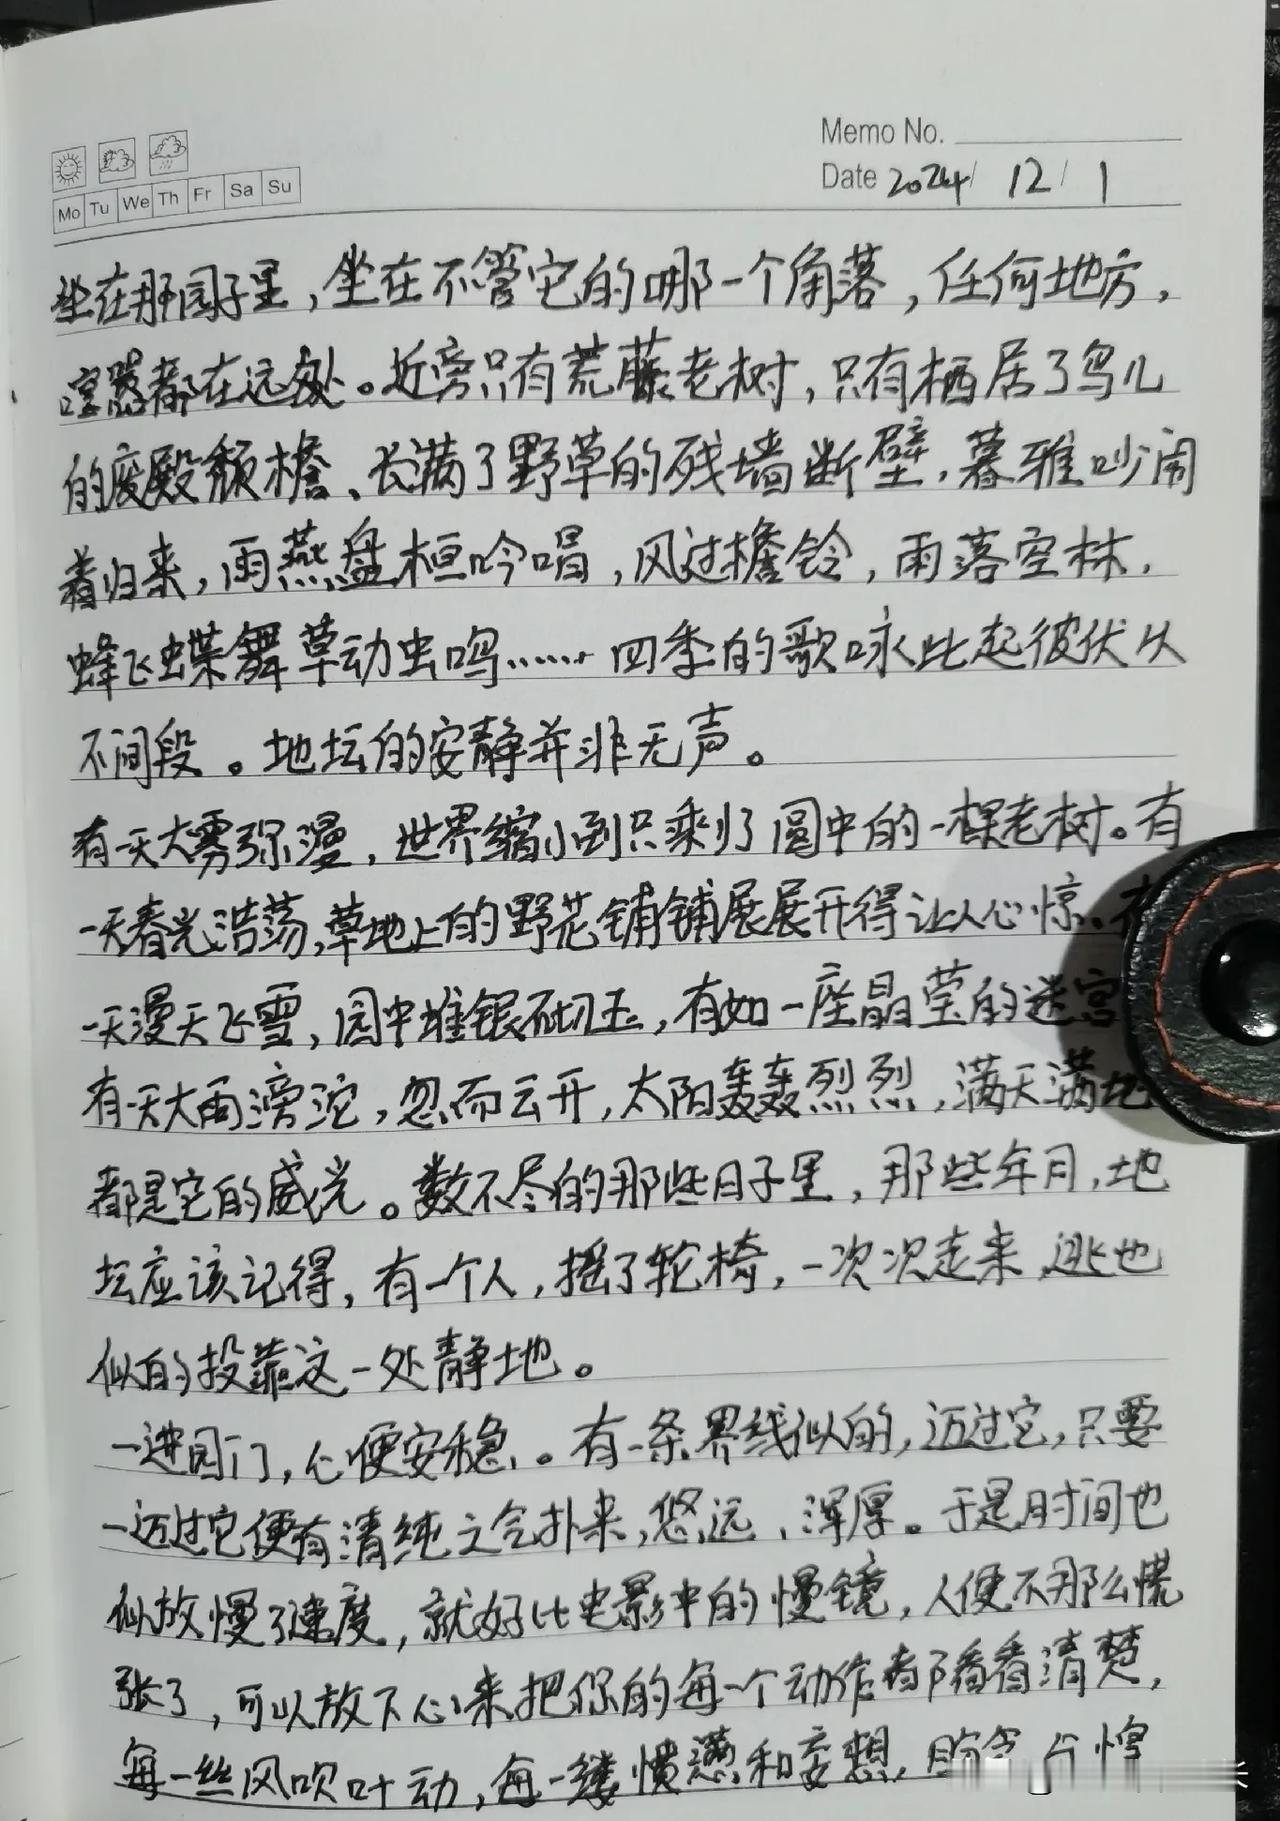 Memo No.
Date 2024/ 12 / 1
Mo Tu We Th Fr Sa Su
坐在那园子里，坐在不管它的哪一个角落，任何地方，
喧嚣都在远处。近旁只有荒藤老树，只有栖居了鸟儿
的废殿颓檐、长满了野草的残墙断壁，暮雅吵闹
着归来，雨燕盘桓吟唱，风过檐铃，雨落空林，
蜂飞蝶舞草动虫鸣……四季的歌咏此起彼伏从
不间段。地坛的安静并非无声。
有一天大雾弥漫，世界缩小到只剩了园中的一棵老树。有
一天春光浩荡，草地上的野花铺铺展展开得让人心惊。有
一天漫天飞雪，园中堆银砌玉，有如一座晶莹的迷宫
有一天大雨滂沱，忽而云开，太阳轰轰烈烈，满天满地
都是它的威光。数不尽的那些日子里，那些年月，地
坛应该记得，有一个人，摇了轮椅，一次次走来，逃也
似的投靠这一处静地。
一进园门，心便安稳。有一条界线似的，迈过它，只要
一迈过它便有清纯之气扑来，悠远、浑厚。于是时间也
似放慢了速度，就好比电影中的慢镜，人便不那么慌
张了，可以放下心来把你的每一个动作都看看清楚，
每一丝风吹叶动，每一缕愤懑和妄想，